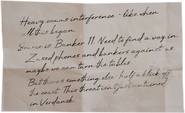 Heavy comms interference - like when
all this began.
Source is Bunker 11. Need to find a way in.
Zused phones and bunkers against us
maybe we can turn the tables.
But there's something else - half a click off
the coast. This threat isn't just contained
in Verdansk.